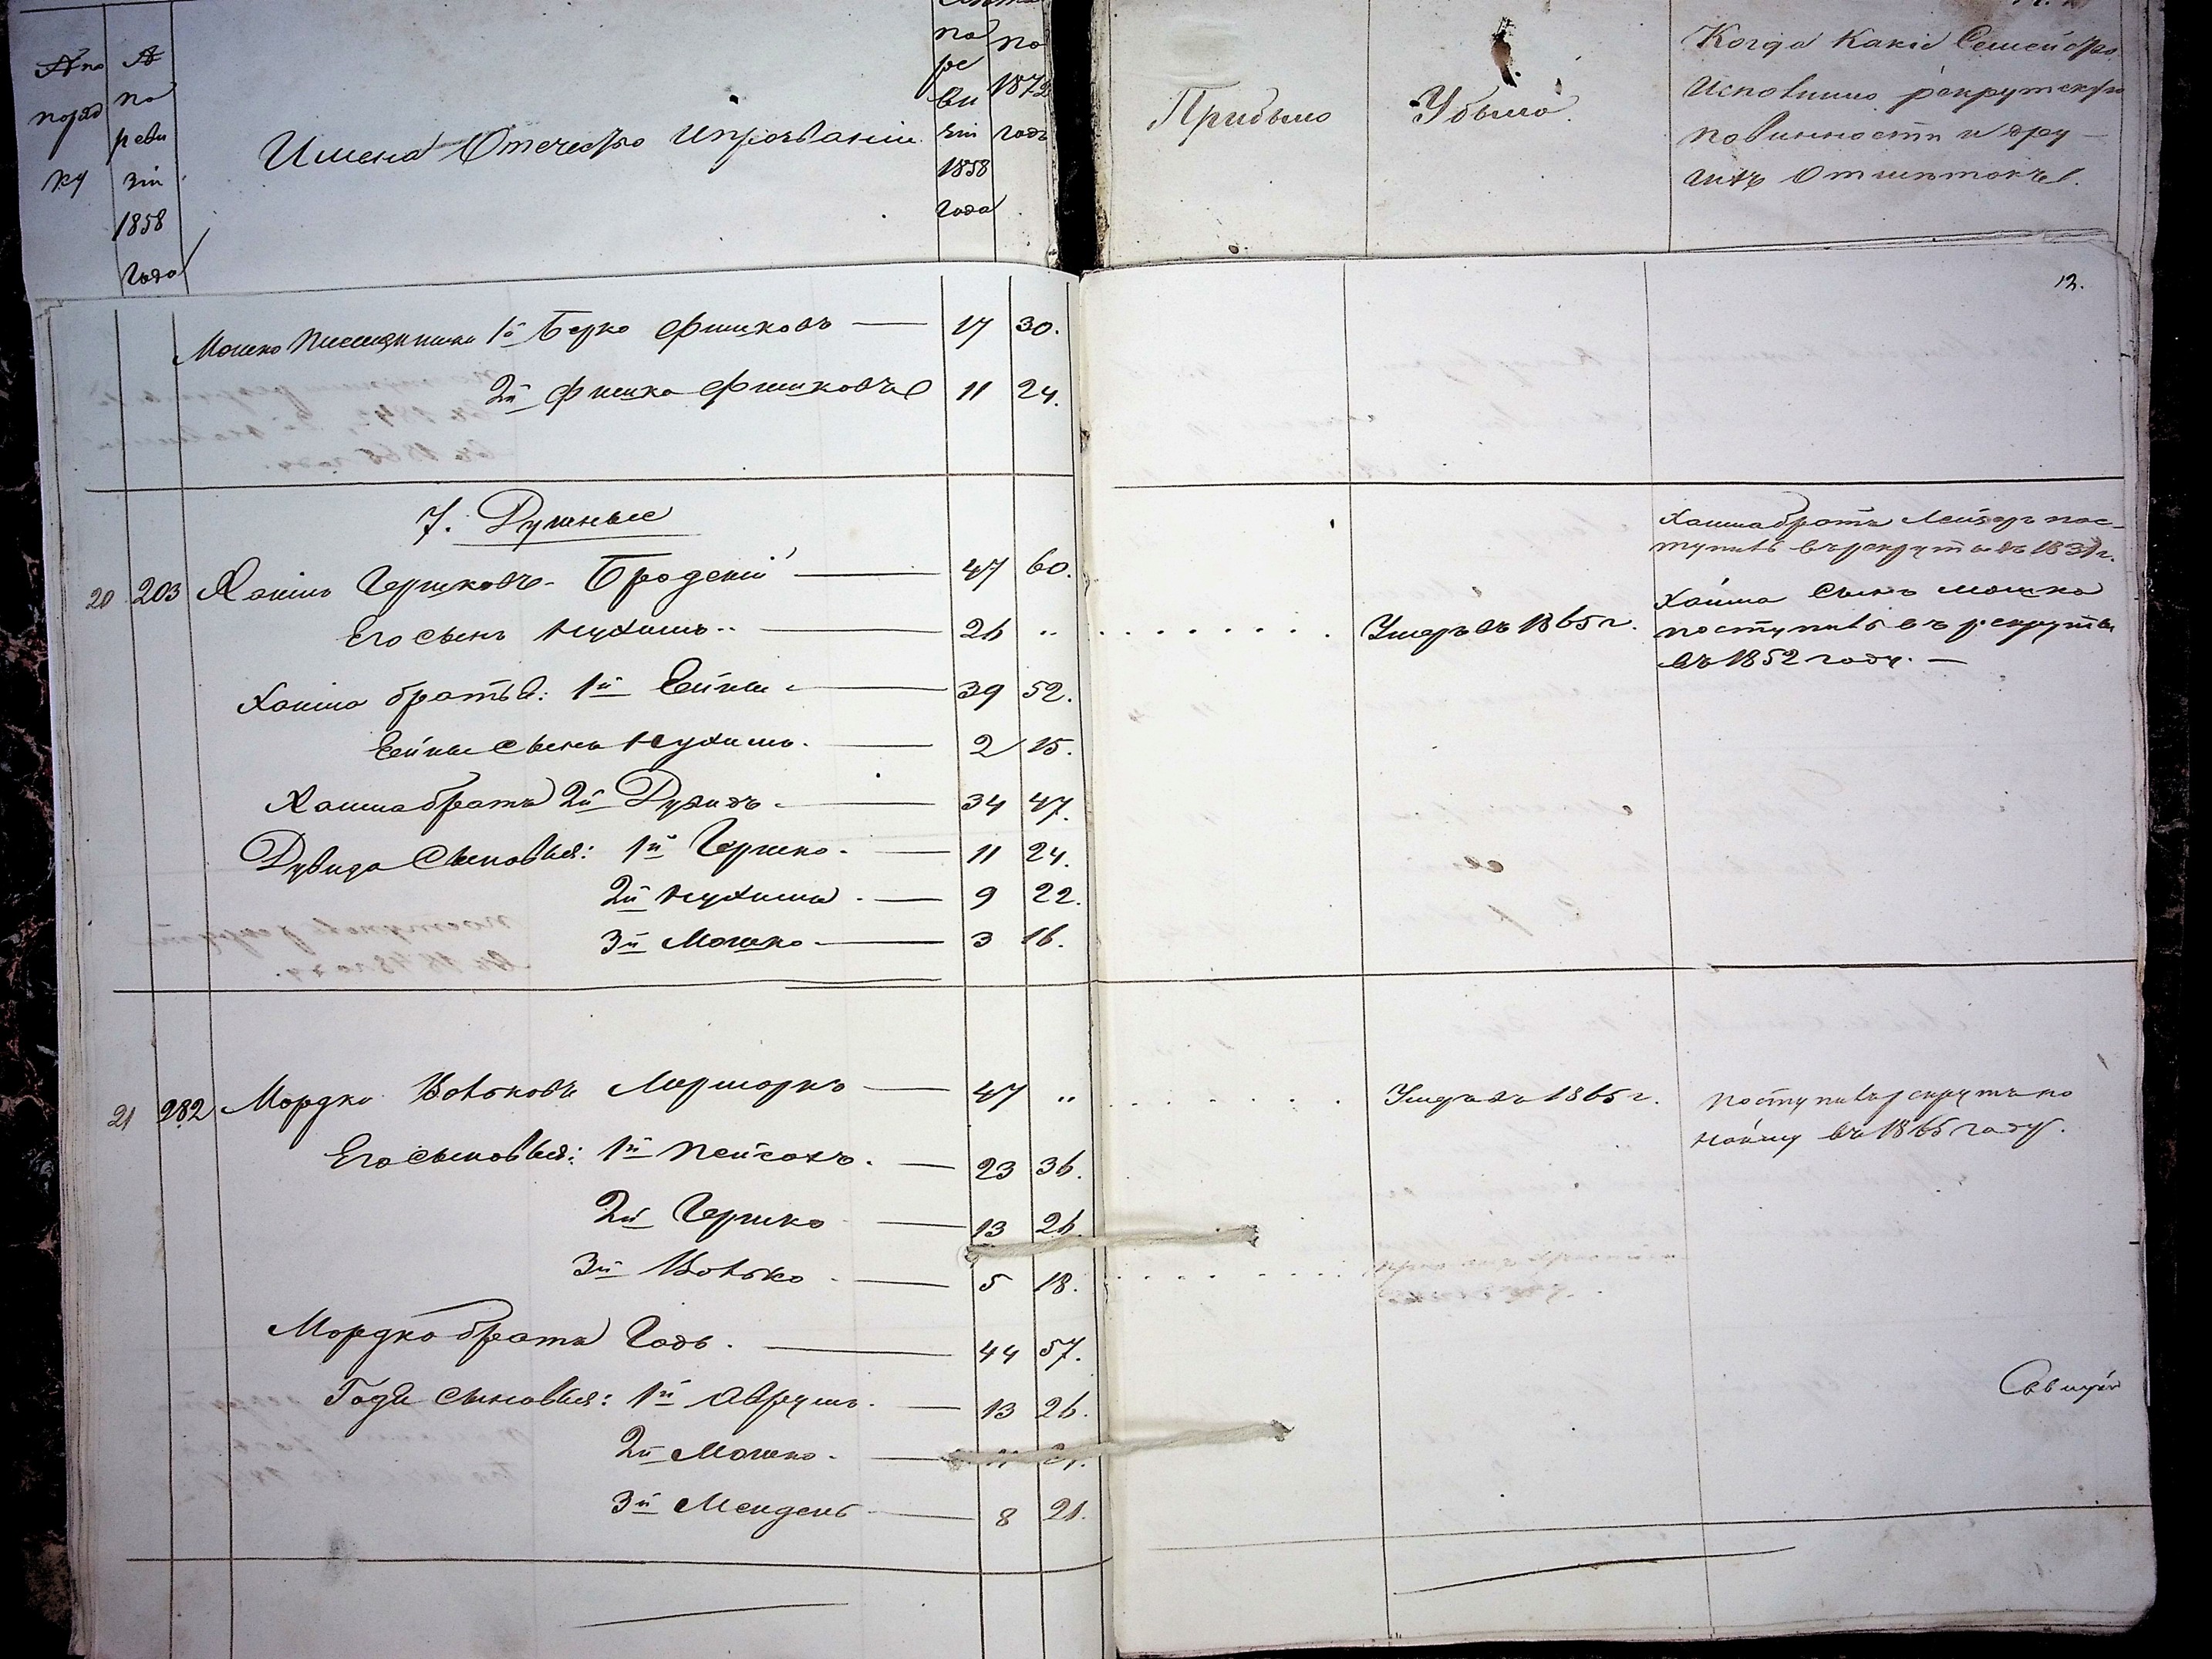 № по порядку
№ по ревизіи 1858 года
Имена Отечество и прозваніи
по ревизіи 1858 года
по 1872 годъ
Прибыло
Убыло.
Когда Какіе Семейства
Исполнило рекрутскую
повинность и дру-
гихъ Отмѣтокъ.
12.
Мошко 1й Берко Фишковъ — 17 30.
2й Фишка Фишковъ 11 24.
7. Душные
20 203 Хаимъ Гершковъ Бродскій — 47 60.
Его сынъ Нухимъ — 26 „ Умеръ въ 1865 г.
Хаима братья: 1й Сейны — 39 52.
Сейны сынъ Нухимъ. — 2 15.
Хаима братъ 2й Дувидъ — 34 47.
Дувида Сыновья: 1й Гершко — 11 24.
2й Нухимъ — 9 22.
3й Мошко — 3 16.
Хаима братъ Лейзеръ пос-
тупилъ въ рекруты въ 183 г.
Хаима Сынъ Мошко
поступилъ въ рекруты
въ 1852 году. —
21 282 Мордко Вольковъ — 47 „ Умеръ въ 1865 г.
Его сыновья: 1й Пейсахъ. — 23 36.
2й Гершко — 13 26.
3й Волько — 5 18.
Мордко братъ Годь. — 44 57.
Годя сыновья: 1й Аврумъ. — 13 26.
2й Мошко. — 11
3й Мендель — 8 21.
поступилъ рекрутъ по
найму въ 1865 году.